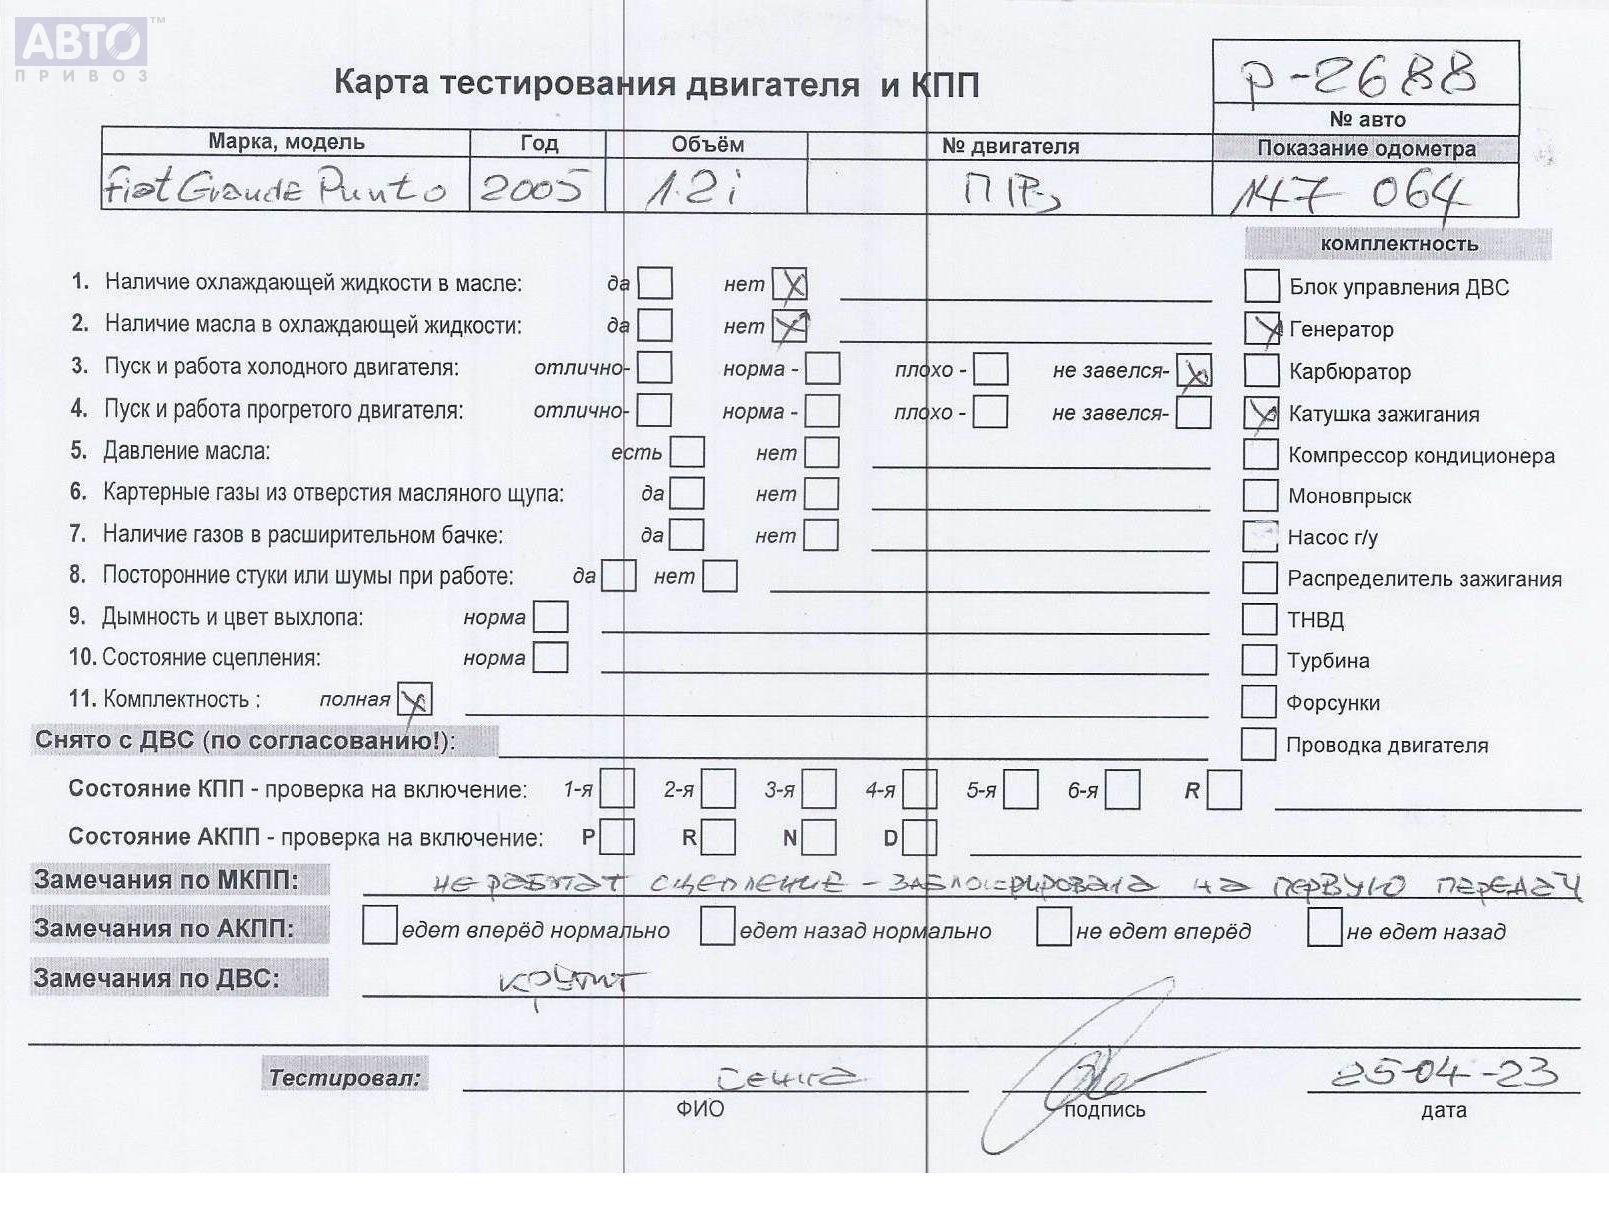 АВТО™
ПРИВОЗ
Карта тестирования двигателя и КПП
р-2688
№ авто
Марка, модель Год Объём № двигателя Показание одометра
Fiat Grande Punto 2005 1.2i 147 064
комплектность
1. Наличие охлаждающей жидкости в масле: да нет Блок управления ДВС
2. Наличие масла в охлаждающей жидкости: да нет Генератор
3. Пуск и работа холодного двигателя: отлично- норма - плохо - не завелся- Карбюратор
4. Пуск и работа прогретого двигателя: отлично- норма - плохо - не завелся- Катушка зажигания
5. Давление масла: есть нет Компрессор кондиционера
6. Картерные газы из отверстия масляного щупа: да нет Моновпрыск
7. Наличие газов в расширительном бачке: да нет Насос г/у
8. Посторонние стуки или шумы при работе: да нет Распределитель зажигания
9. Дымность и цвет выхлопа: норма ТНВД
10. Состояние сцепления: норма Турбина
11. Комплектность : полная Форсунки
Снято с ДВС (по согласованию!): Проводка двигателя
Состояние КПП - проверка на включение: 1-я 2-я 3-я 4-я 5-я 6-я R
Состояние АКПП - проверка на включение: P R N D
Замечания по МКПП: не работат сцепление - заблокирована на первую передач
Замечания по АКПП: едет вперёд нормально едет назад нормально не едет вперёд не едет назад
Замечания по ДВС: крутит
Тестировал: 25-04-23
ФИО подпись дата